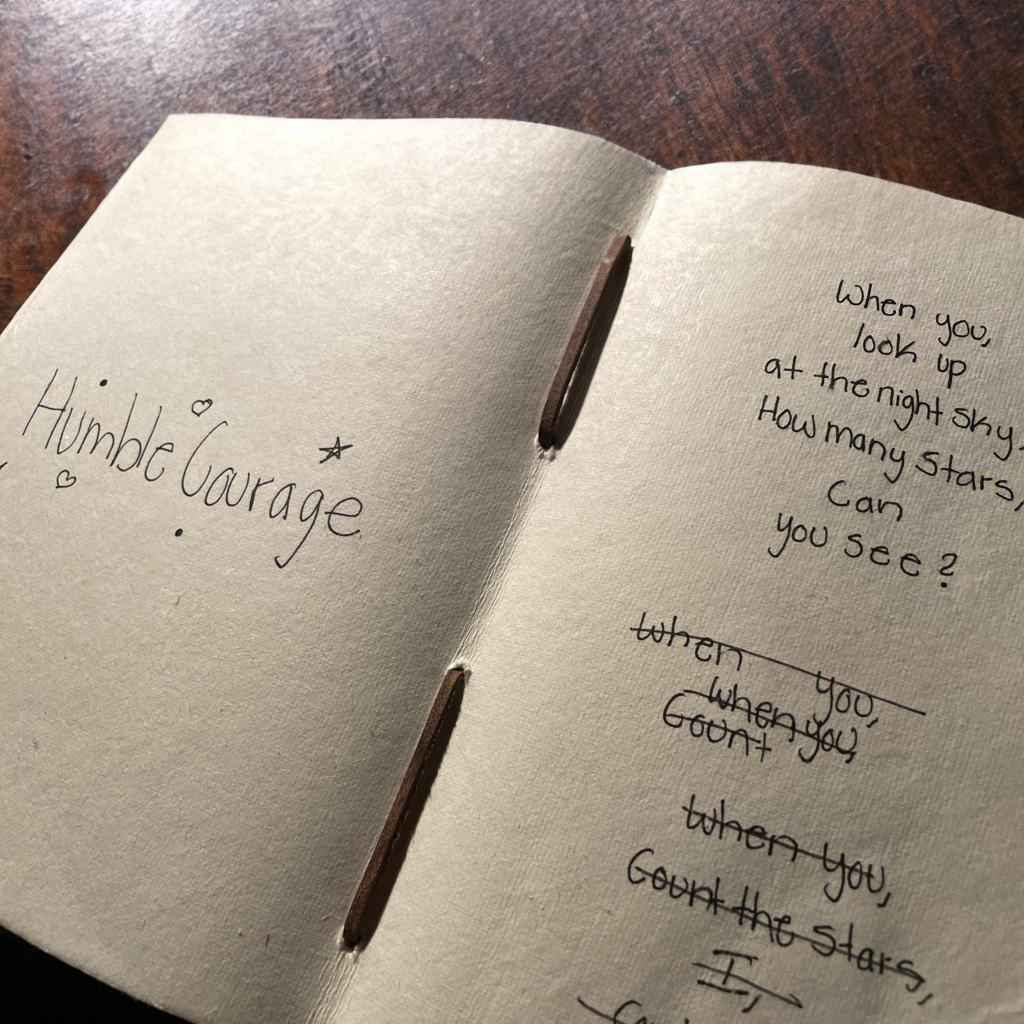 Humble Courage
When you,
look up
at the night sky,
How many stars,
Can
you see?
When you,
when you,
Count
When you,
Count the stars,
I,